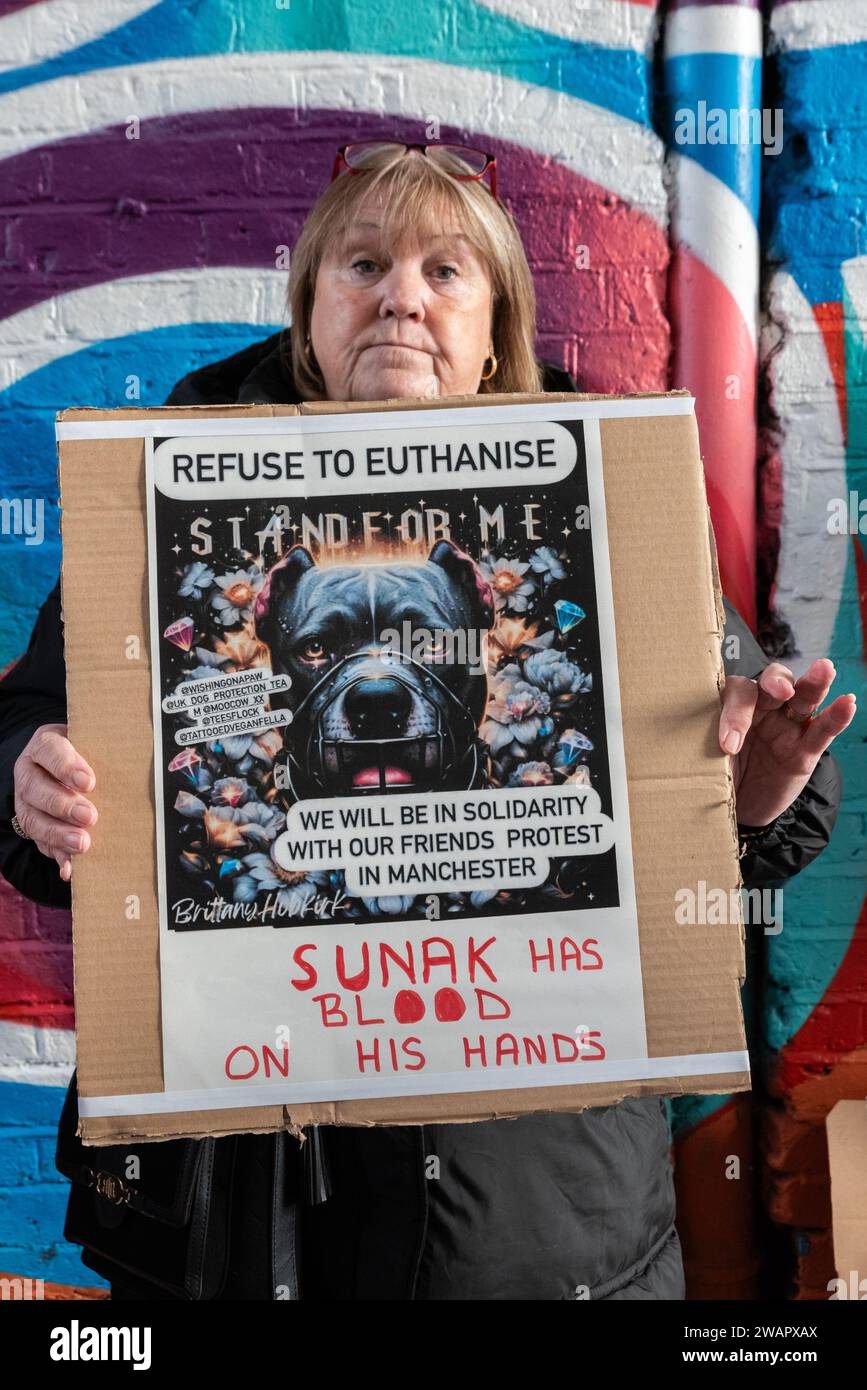 REFUSE TO EUTHANISE
STAND FOR ME
@WISHINGONAPAW_
@UK_DOG_PROTECTION_TEA
M @MOOCOW_XX
@TEESFLOCK
@TATTOOEDVEGANFELLA
WE WILL BE IN SOLIDARITY
WITH OUR FRIENDS PROTEST
IN MANCHESTER
Brittany Hobkirk
SUNAK HAS
BLOOD
ON HIS HANDS
alamy
alamy
Image ID: 2WAPXAX
www.alamy.com